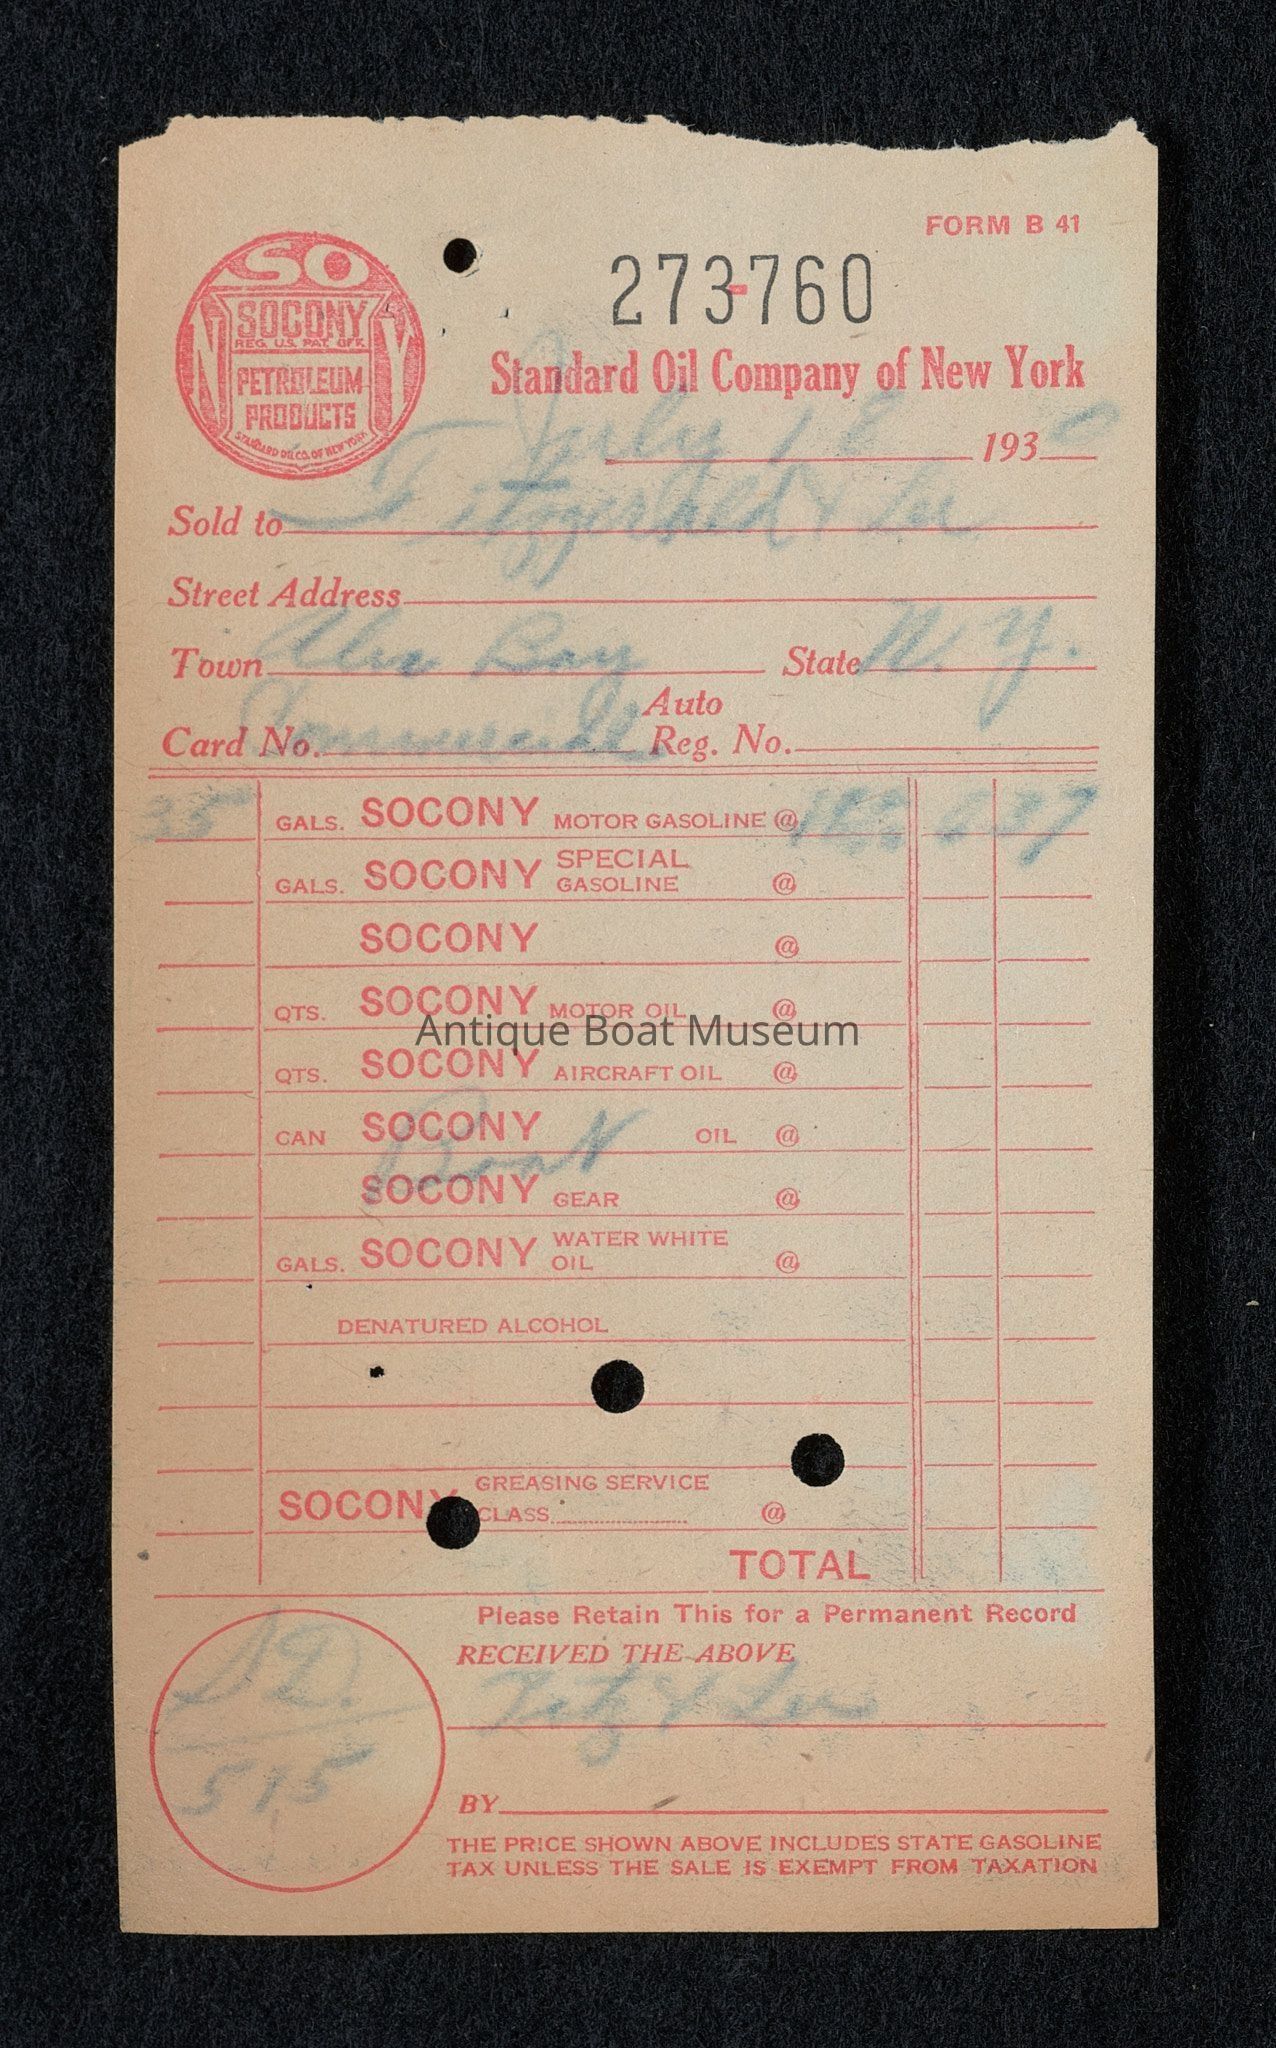 FORM B 41
SO
NY
SOCONY
REG. U.S. PAT. OFF.
PETROLEUM
PRODUCTS
STANDARD OIL CO. OF NEW YORK
273-760
Standard Oil Company of New York
July 18 1930
Sold to Fitzgerald & Lee
Street Address
Town Alex Bay State N.Y.
Auto
Card No. Commercial Reg. No.
35 GALS. SOCONY MOTOR GASOLINE @ 6 37
GALS. SOCONY SPECIAL GASOLINE @
SOCONY @
QTS. SOCONY MOTOR OIL @
Antique Boat Museum
QTS. SOCONY AIRCRAFT OIL @
CAN SOCONY OIL @
Boat
SOCONY GEAR @
GALS. SOCONY WATER WHITE OIL @
DENATURED ALCOHOL
SOCONY GREASING SERVICE
CLASS @
TOTAL
Please Retain This for a Permanent Record
RECEIVED THE ABOVE
Fitz & Lee
SD.
515
BY
THE PRICE SHOWN ABOVE INCLUDES STATE GASOLINE
TAX UNLESS THE SALE IS EXEMPT FROM TAXATION